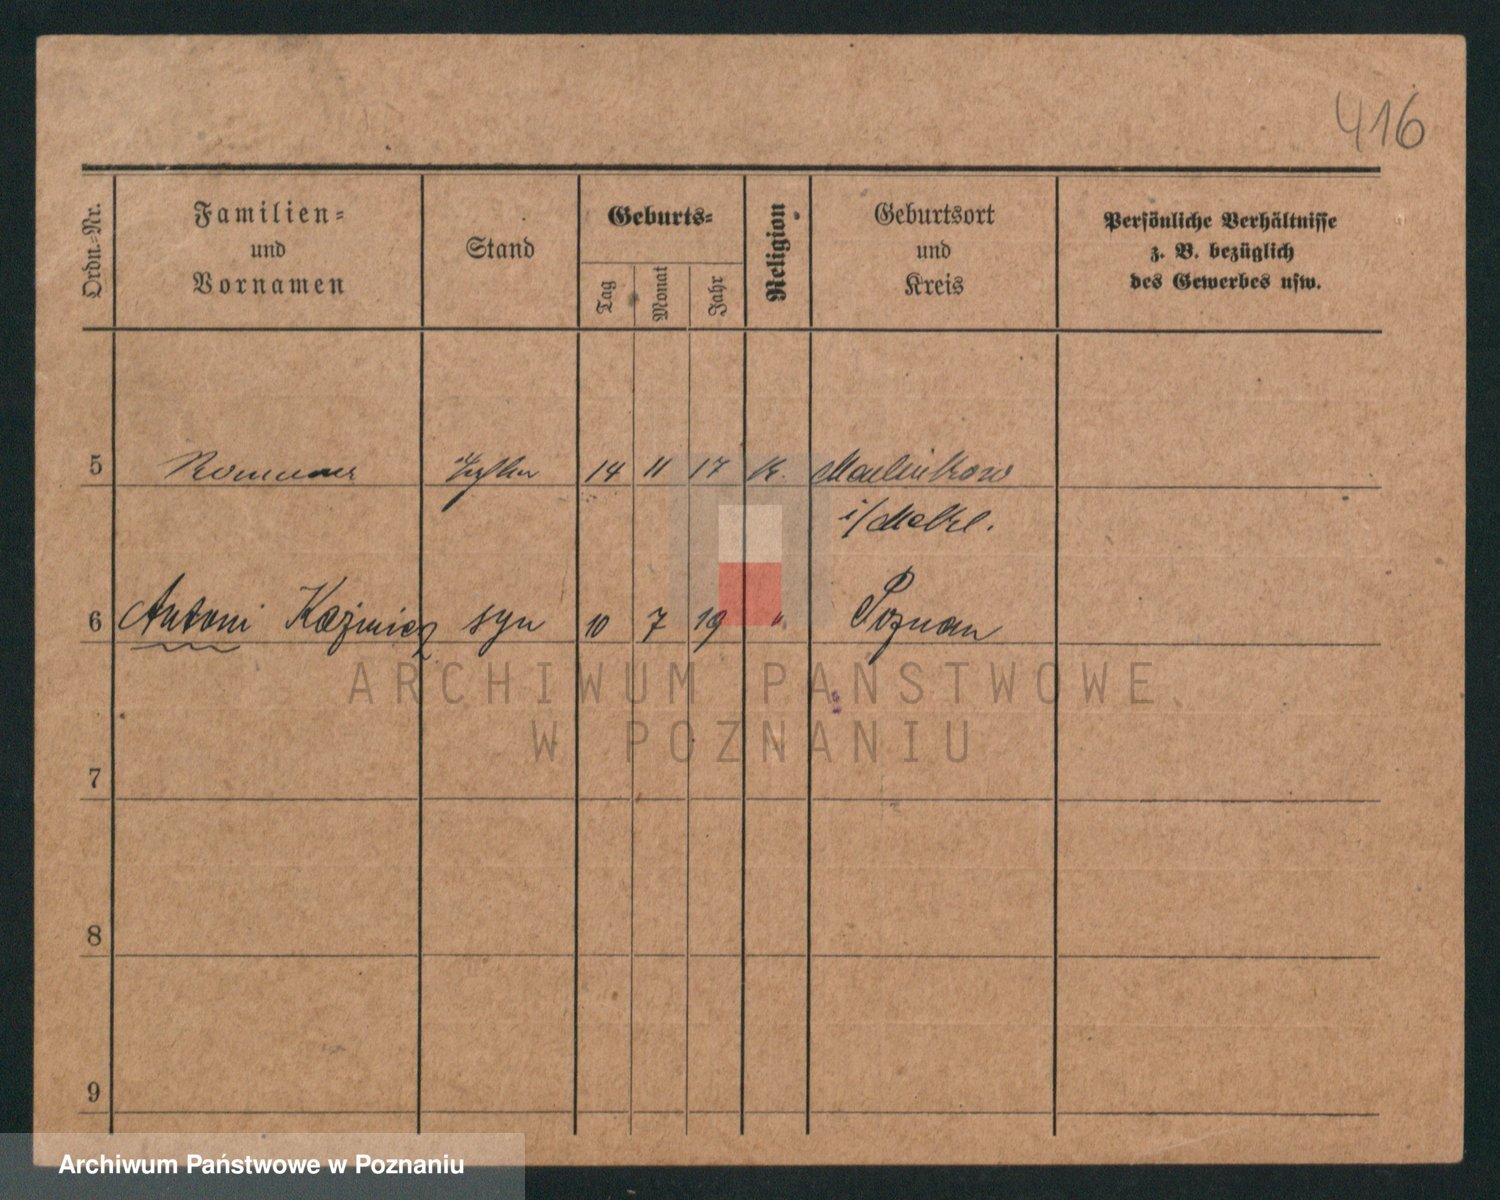 416
Ordn.-Nr.
Familien-
und
Vornamen
Stand
Geburts-
Tag
Monat
Jahr
Religion
Geburtsort
und
Kreis
Persönliche Verhältnisse
z. B. bezüglich
des Gewerbes usw.
5 14 11 17 K.
i/Meckl.
6 Antoni Kaźmierz syn 10 7 19 " Poznan
7
8
9
ARCHIWUM PAŃSTWOWE
W POZNANIU
Archiwum Państwowe w Poznaniu